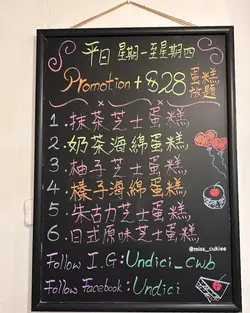 平日 星期一至星期四
Promotion + $28 蛋糕放題
1. 抹茶芝士蛋糕
2. 奶茶海綿蛋糕
3. 柚子芝士蛋糕
4. 榛子海綿蛋糕
5. 朱古力芝士蛋糕
6. 日式原味芝士蛋糕
@miss_cukiee
Follow I.G: Undici_cwb
Follow Facebook: Undici